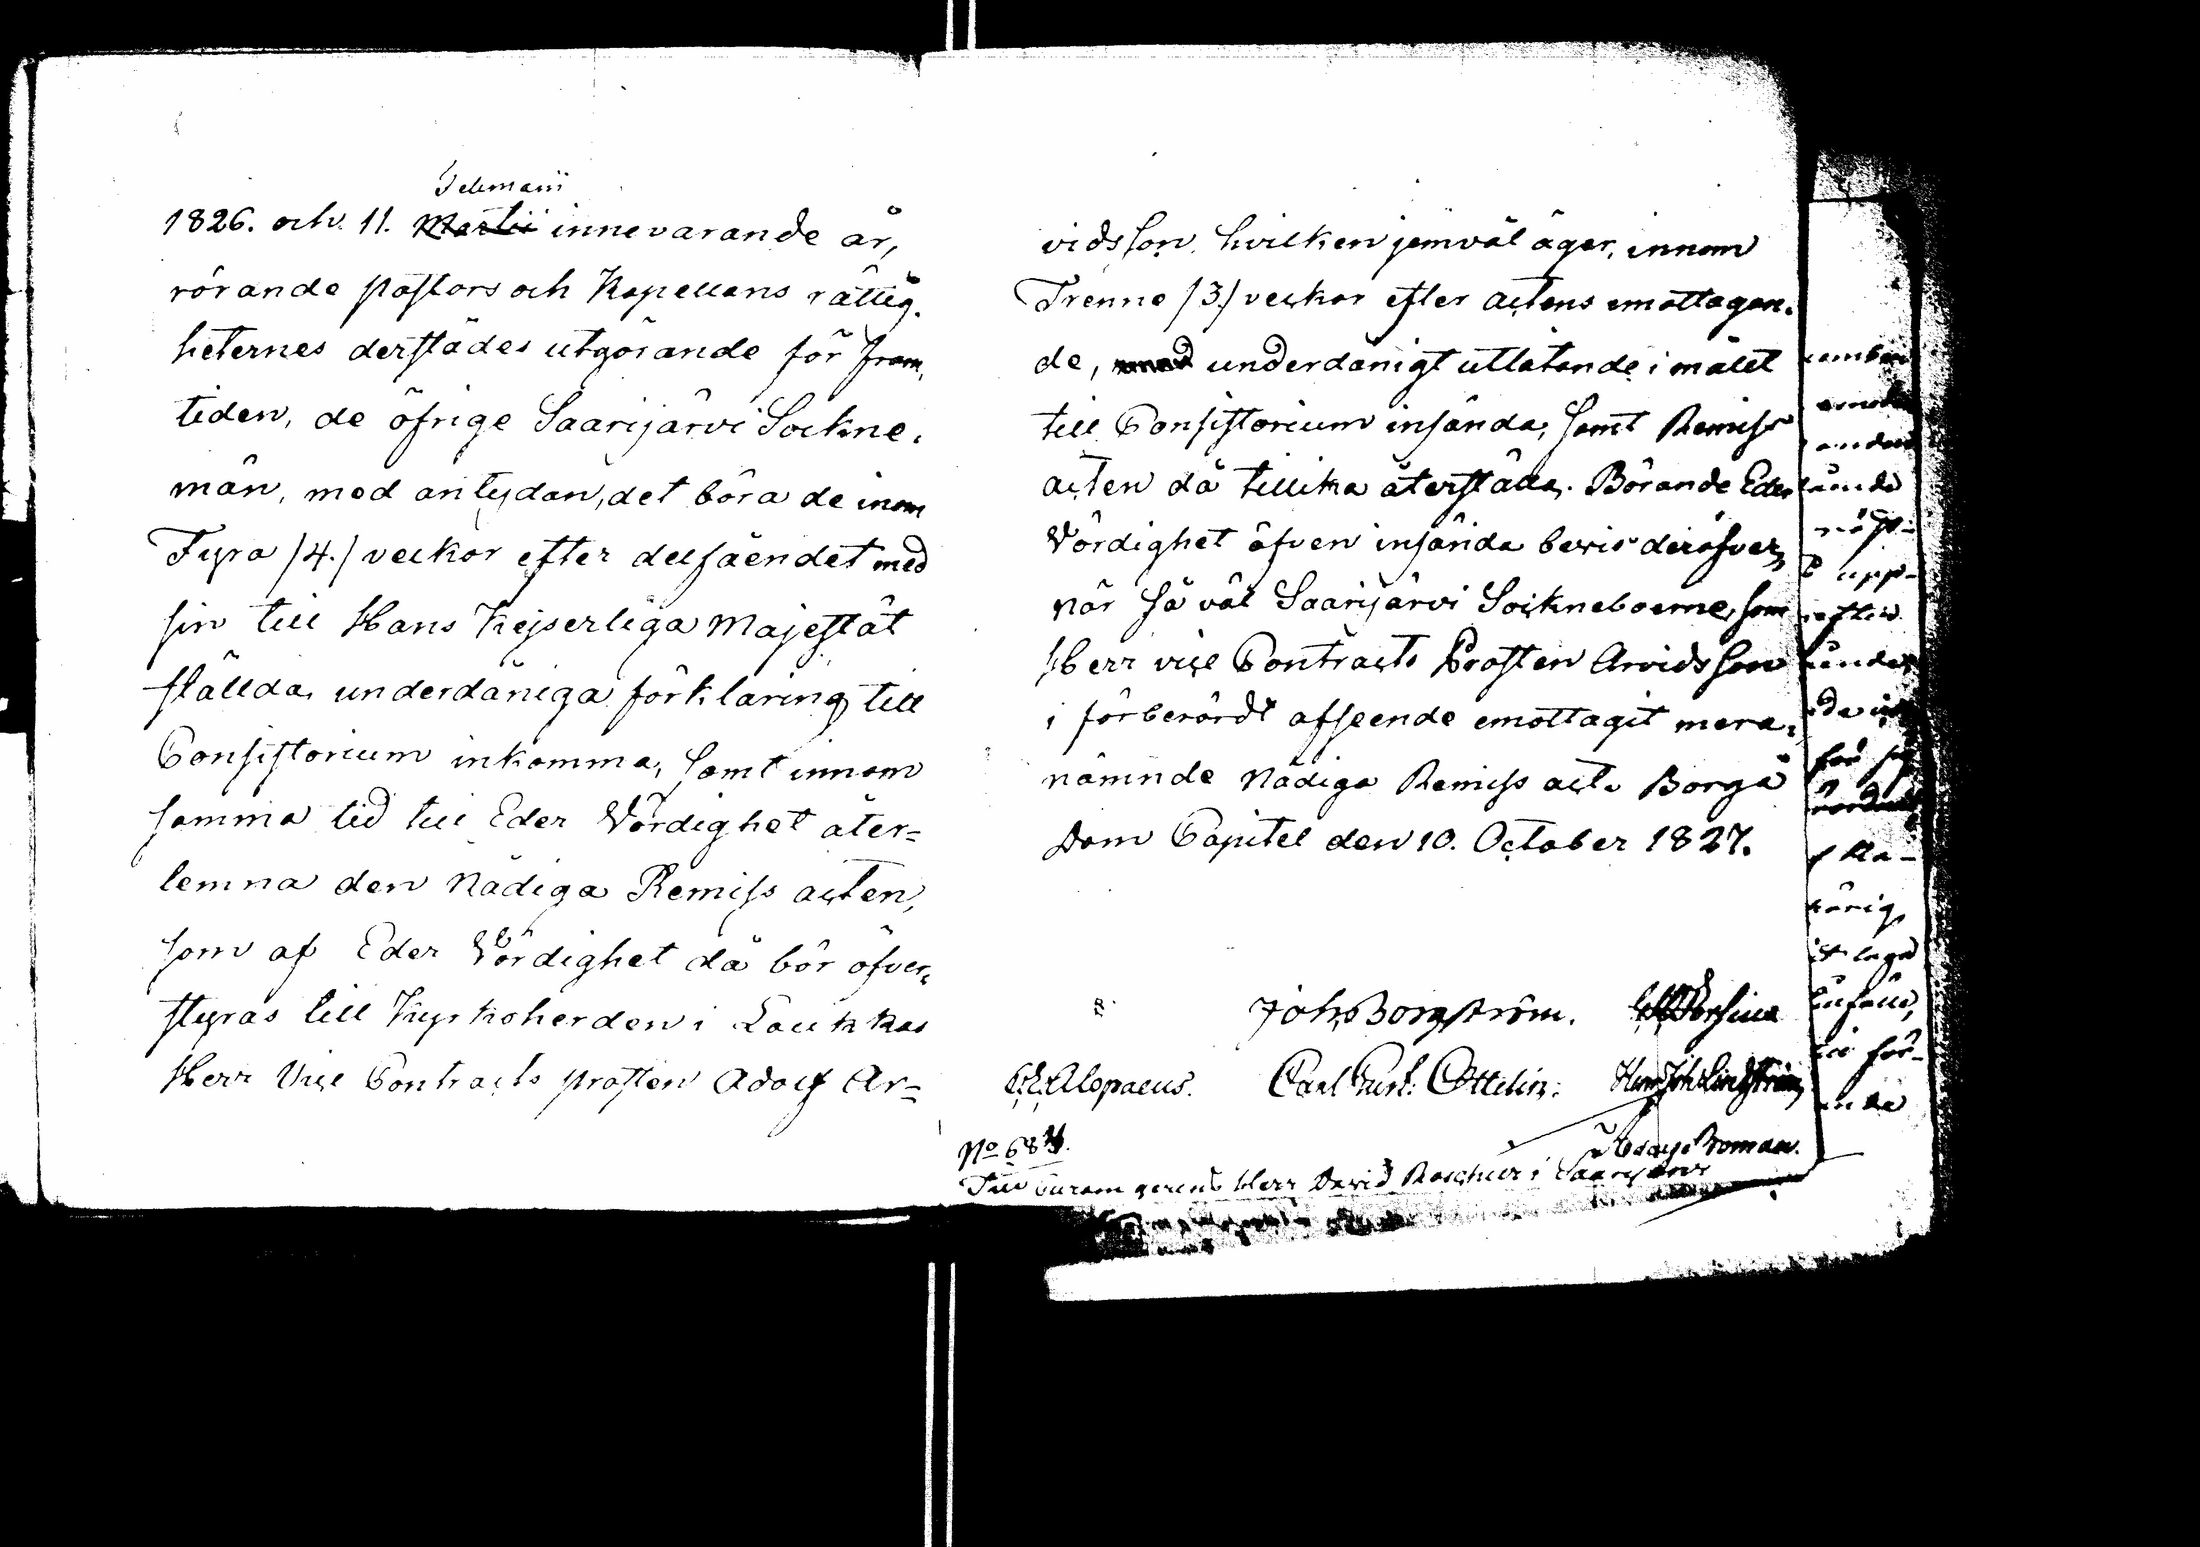 Februarii
1826. och 11. Martii innevarande år,
rörande Pastors och Kapellans rättig-
heternes derstädes utgörande för fram-
tiden, de öfrige Saarijärvi Sockne-
män, med antydan, det böra de inom
Fyra /4./ veckor efter delfåendet med
sin till Hans Kejserliga Majestät
ställda underdåniga förklaring till
Consistorium inkomma, samt innom
samma tid till Eder Vördighet åter-
lemna den Nådiga Remiss acten,
som af Eder Vördighet då bör öfver-
styras till Kyrkoherden i Laukkas
Herr Vice Contracts Prosten Adolf Ar-
vidsson, hvilken jemväl äger, innom
Trenne /3/ veckor efter actens emottagan-
de, underdånigt utlåtande i målet
till Consistorium insända, samt Remiss
acten då tillika återställa. Börande Eder
Vördighet äfven insända bevis deröfver,
när så väl Saarijärvi Sockneboerne, som
Herr vice Contracts Prosten Arvidsson
i förberördt afseende emottagit mera-
nämnde Nådiga Remiss act. Borgå
Dom Capitel den 10. October 1827.
Joh. Borgström.
Alopaeus. Carl Gust. Ottelin. Joh. Lindström
Roman.
No 68
Till Curam gerens Herr David Roschier i Saarijärvi
upp-
efter
för